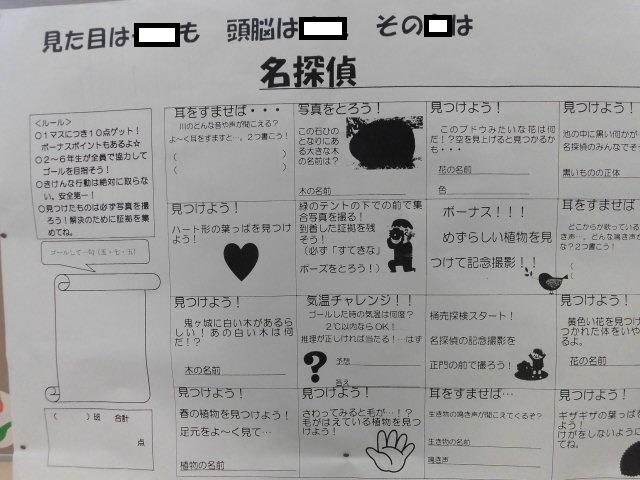 見た目は
も 頭脳は
その
は
名探偵
<ルール>
○1マスにつき10点ゲット！
ボーナスポイントもあるよ☆
○2～6年生が全員で協力して
ゴールを目指そう！
○きけんな行動は絶対に取らな
い。安全第一！
○見つけたものは必ず写真を撮
ろう！解決のために証拠を集
めてね。
ゴールして一句（五・七・五）
（　）班 合計
点
耳をすませば・・・
川のどんな音や声が聞こえる？
よ～く耳をすますと…。2つ書こう！
（　）
（　）
写真をとろう！
この石のひ
となりにあ
る大きな木
の名前は？
木の名前
見つけよう！
このブドウみたいな花は何
だ！？空を見上げると見つかるか
も・・・
花の名前
色
見つけよう！
池の中に黒い何かが
名探偵のみんなでそ
黒いものの正体
見つけよう！
ハート形の葉っぱを見つけ
よう！
緑のテントの下での前で集
合写真を撮る！
到着した証拠を残
そう！
（必ず「すてきな」
ポーズをとろう！）
ボーナス！！！
めずらしい植物を見
つけて記念撮影！！
耳をすませば
どこからか歌っている
き声…。どんな鳴き声か
な？2つ書こう！
見つけよう！
鬼ヶ城に白い木があるら
しい！あの白い木は何
だ！？
木の名前
気温チャレンジ！！
ゴールした時の気温は何度？
2℃以内ならOK！
推理が正しければ当たる！…はず
予想
答え
桶売探検スタート！
名探偵の記念撮影を
正門の前で撮ろう！
見つけよう！
黄色い花を見つけ
つかれた体をいや
るよ。
花の名前
見つけよう！
春の植物を見つけよう！
足元をよ～く見て…
植物の名前
見つけよう！
さわってみると毛が…！？
毛がはえている植物を見つ
けよう！
耳をすませば…
生き物の鳴き声が聞こえてくるぞ？
生き物の名前
鳴き声
見つけよう！
ギザギザの葉っぱを
よう！
けがをしないように
てね。